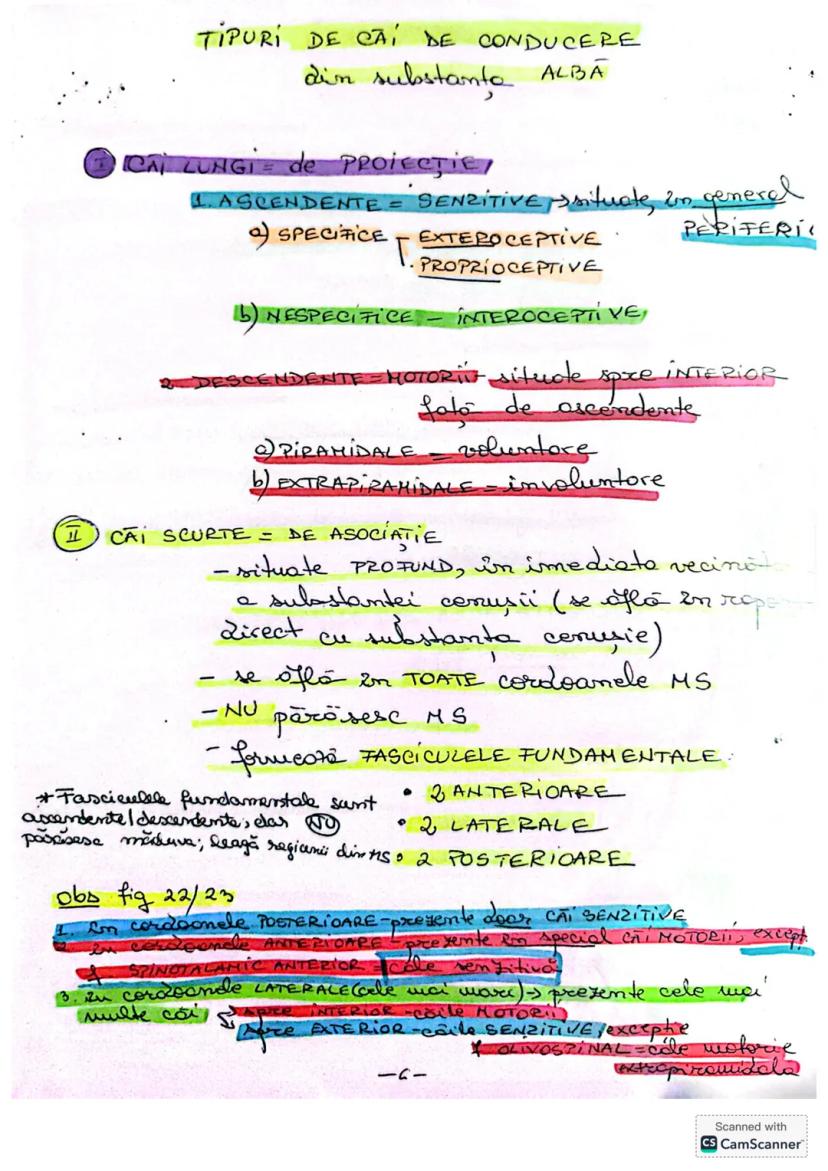 TIPURI DE CĂI DE CONDUCERE
din substanța ALBĂ
I CĂI LUNGI = de PROIECȚIE
1. ASCENDENTE = SENZITIVE → situate, în general
PERIFERIC
a) SPECIFICE EXTEROCEPTIVE
PROPRIOCEPTIVE
b) NESPECIFICE - INTEROCEPTIVE
2. DESCENDENTE = MOTORII - situate spre INTERIOR
față de ascendente
a) PIRAMIDALE = voluntare
b) EXTRAPIRAMIDALE = involuntare
II CĂI SCURTE = DE ASOCIAȚIE
- situate PROFUND, în imediata vecină
a substanței cenușii (se află în rapo
direct cu substanța cenușie)
- se află în TOATE cordoanele MS
- NU părăsesc MS
- formează FASCICULELE FUNDAMENTALE:
• 2 ANTERIOARE
• 2 LATERALE
• 2 POSTERIOARE
* Fasciculele fundamentale sunt
ascendente/descendente, dar NU
părăsesc măduva; leagă regiuni din MS
Obs fig 22/23
1. în cordoanele POSTERIOARE - prezente doar CĂI SENZITIVE
2. în cordoanele ANTERIOARE - prezente în special CĂI MOTORII, except.
SPINOTALAMIC ANTERIOR = cale senzitivă
3. În cordoanele LATERALE (cele mai mari) → prezente cele mai
multe căi spre INTERIOR - căile MOTORII
spre EXTERIOR - căile SENZITIVE, excepție
* OLIVOSPINAL = cale motorie
extrapiramidală
-6-
Scanned with
CS CamScanner